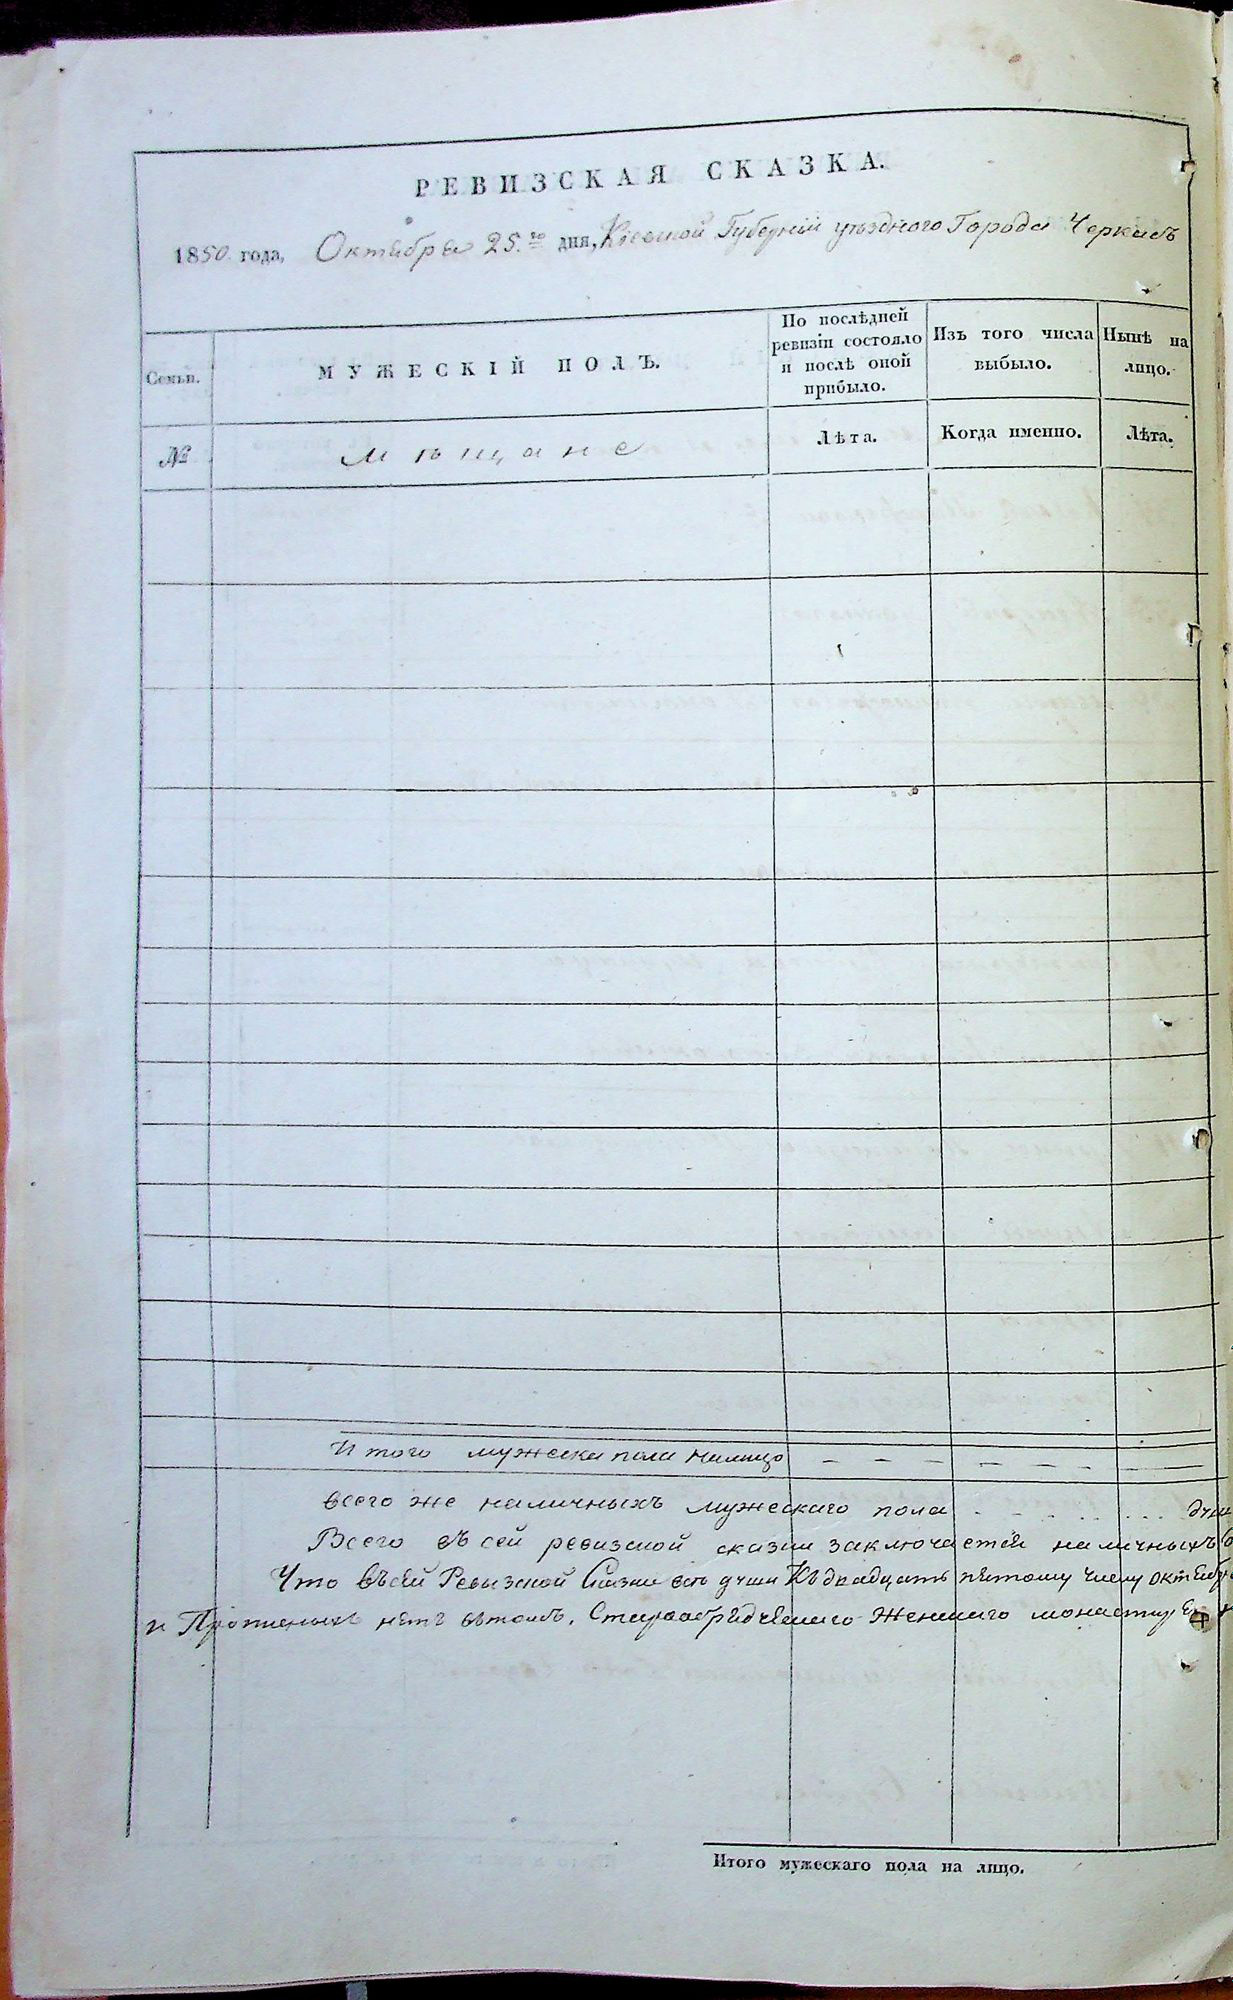 РЕВИЗСКАЯ СКАЗКА.
1850 года, Октября 25.го дня, Киевской Губерніи уѣзднаго Города Черкасъ
Семьи.
МУЖЕСКІЙ ПОЛЪ.
По послѣдней ревизіи состояло и послѣ оной прибыло.
Изъ того числа выбыло.
Нынѣ на лицо.
№
мѣщане
Лѣта.
Когда именно.
Лѣта.
Итого мужеска пола налицо
всего же наличныхъ мужескаго пола
Всего въ сей ревизской сказки заключается наличныхъ
Что въ сей Ревизской Сказки душъ Къ двадцать пятому числу октября
и Прописныхъ нетъ втомъ. Старообрядческаго Женскаго монастыря
Итого мужескаго пола на лицо.